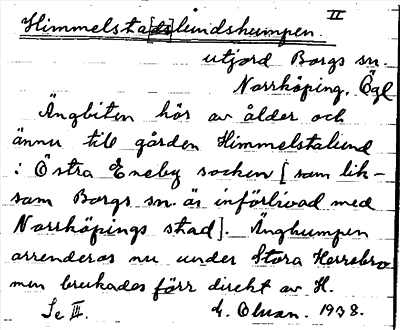 II
Himmelsta[ds]lundshumpen.
utjord Borgs sn.
Norrköping. Ögl
Ängbiten hör av ålder och
ännu till gården Himmelstalund
i Östra Eneby socken [som lik-
som Borgs sn. är införlivad med
Norrköpings stad]. Änghumpen
arrenderas nu under Stora Herrebro
men brukades förr direkt av H.
Se III. 1938.